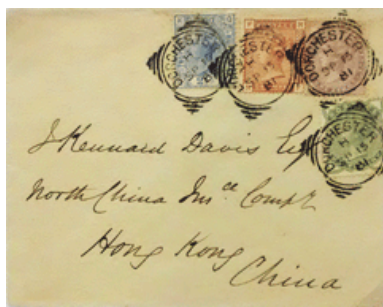 DORCHESTER
H
SP 15
81
DORCHESTER
H
SP 15
81
DORCHESTER
H
SP 15
81
DORCHESTER
H
SP 15
81
J Kennard Davis Esqr
North China Insce Compy
Hong Kong
China